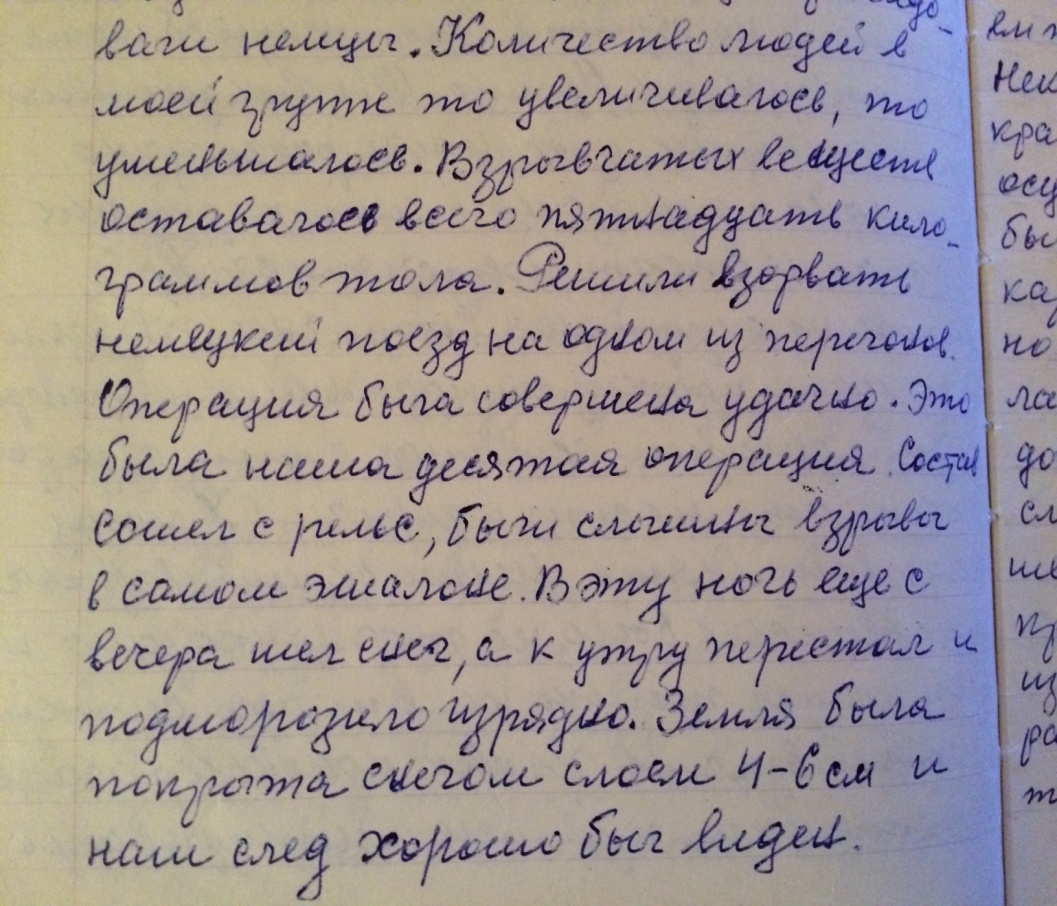 вали немцы. Количество людей в
моей группе то увеличивалось, то
уменьшалось. Взрывчатых веществ
оставалось всего пятнадцать кило-
граммов тола. Решили взорвать
немецкий поезд на одном из перегонов.
Операция была совершена удачно. Это
была наша десятая операция. Состав
сошел с рельс, были слышны взрывы
в самом эшалоне. В эту ночь еще с
вечера шел снег, а к утру перестал и
подморозило изрядно. Земля была
покрыта снегом слоем 4-6 см и
наш след хорошо был виден.